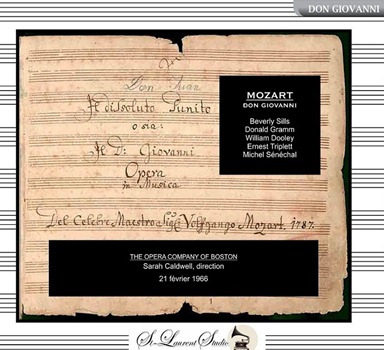 DON GIOVANNI
Don Juan
Il dissoluto Punito
o sia:
Il D: Giovanni
Opera
in Musica
Del Celebre Maestro Sigr Wolffgango Mozart, 1787.
MOZART
DON GIOVANNI
Beverly Sills
Donald Gramm
William Dooley
Ernest Triplett
Michel Sénéchal
THE OPERA COMPANY OF BOSTON
Sarah Caldwell, direction
21 février 1966
St-Laurent Studio